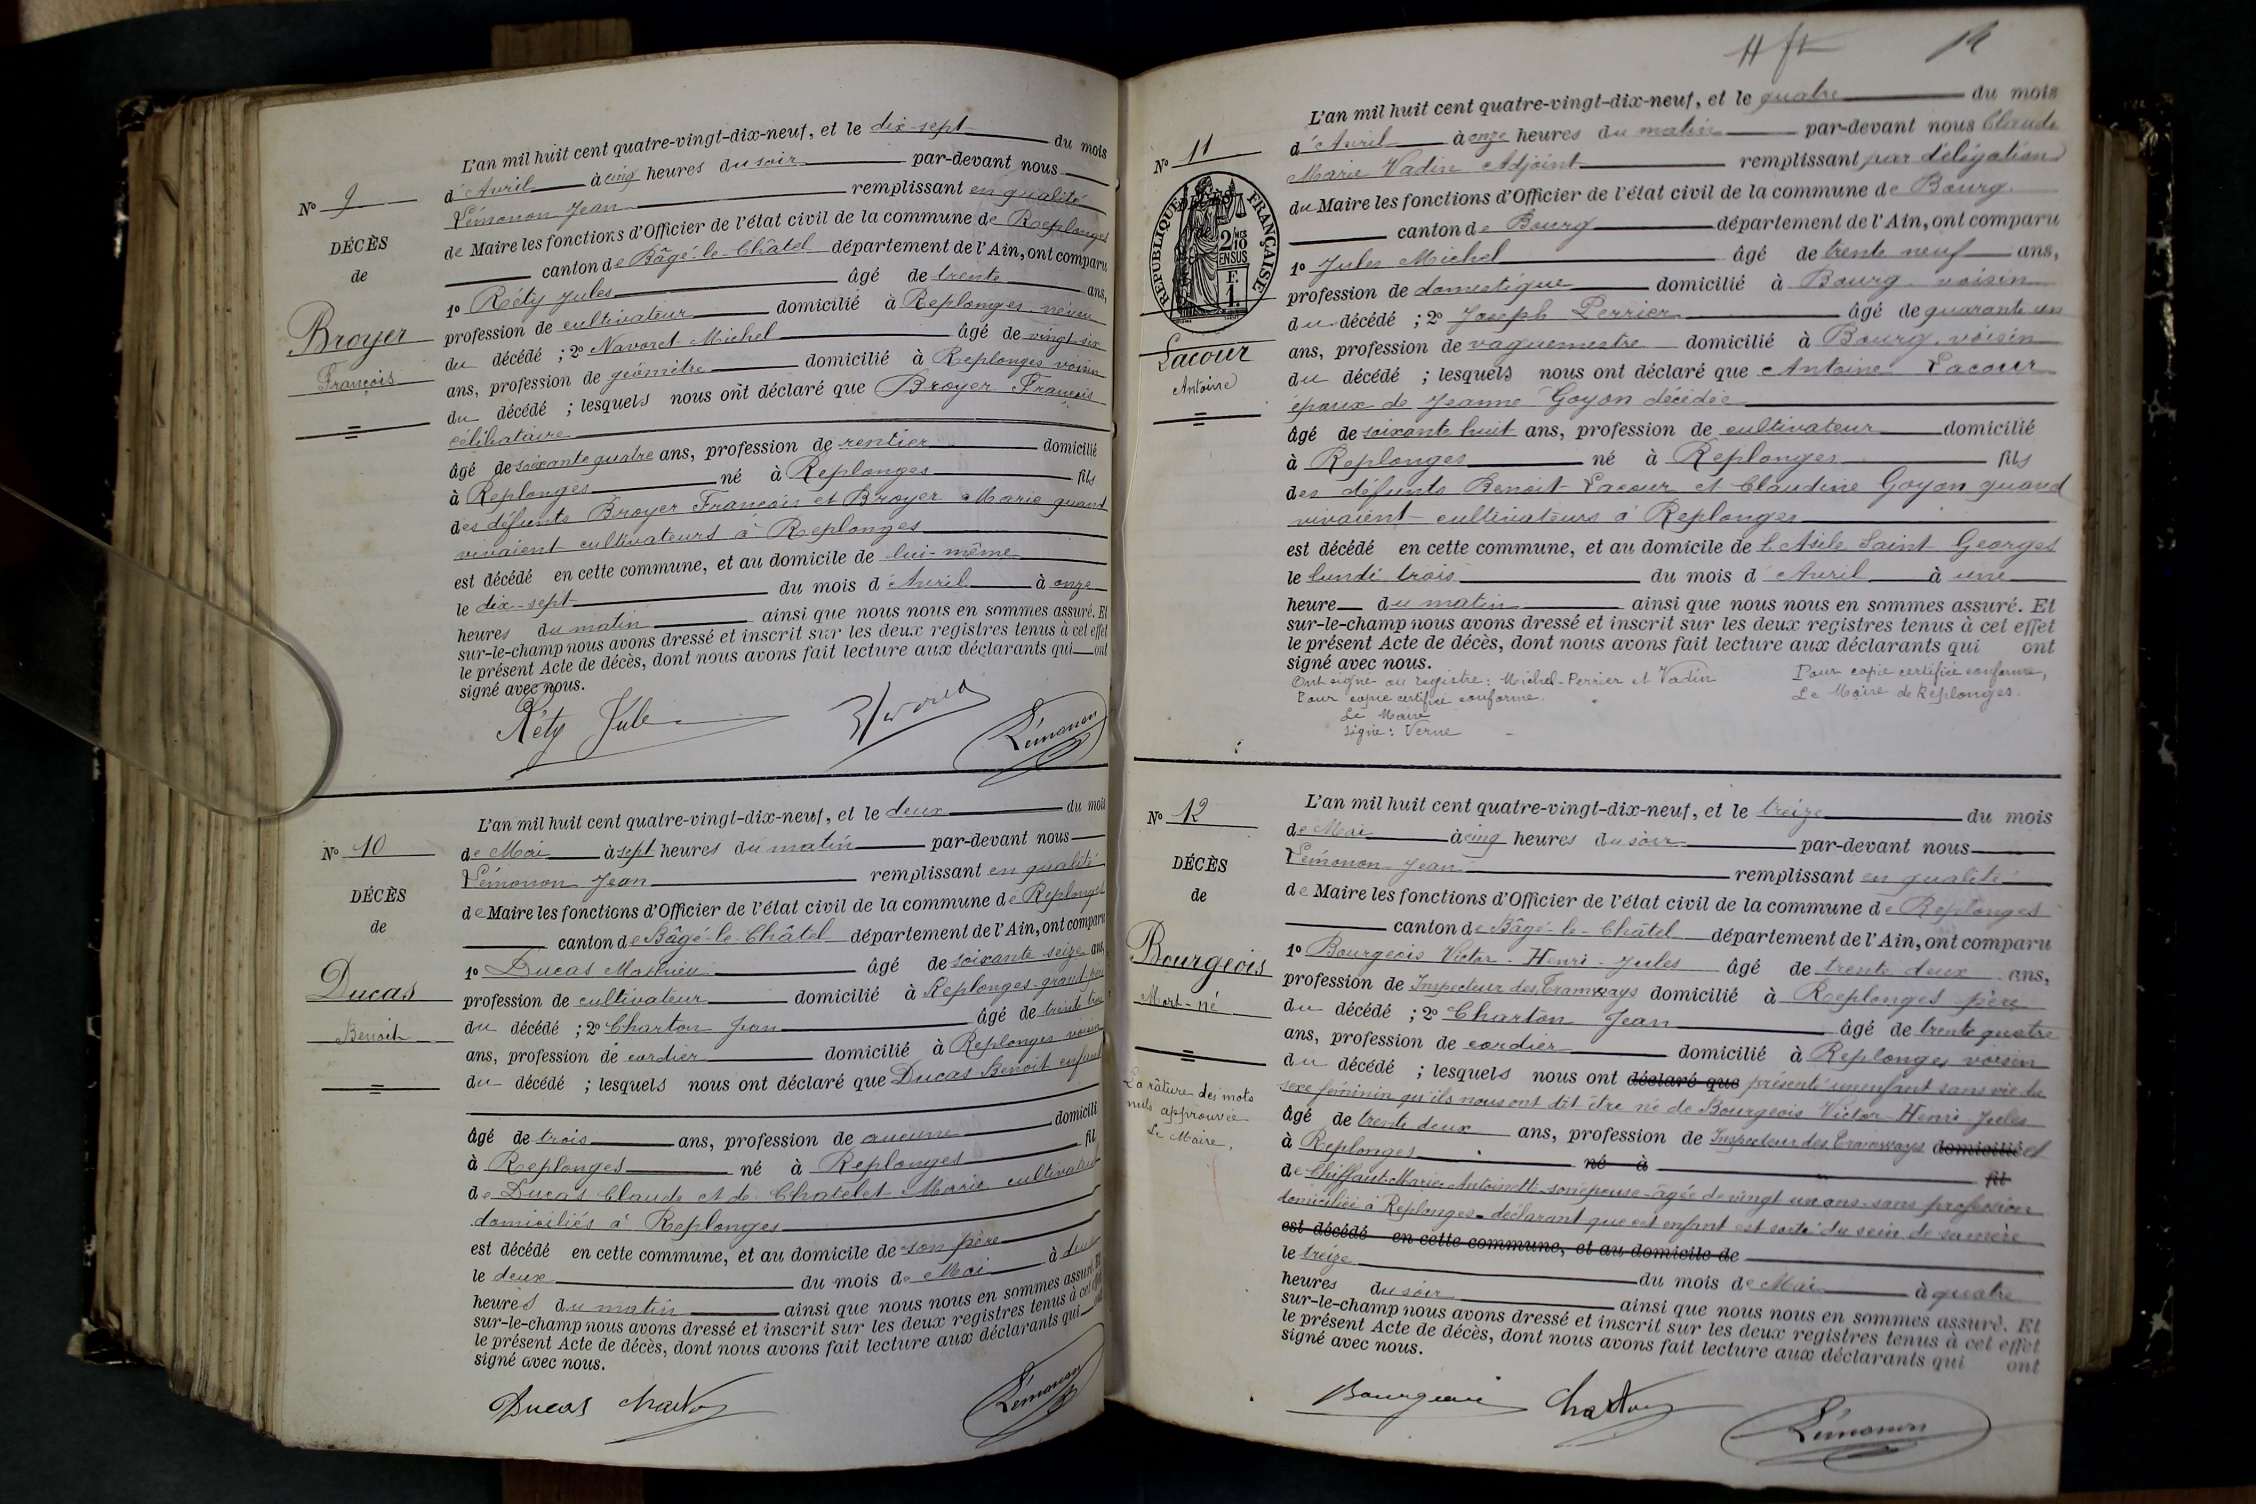 L'an mil huit cent quatre-vingt-dix-neuf, et le dix-sept du mois
d'Avril à cinq heures du soir par-devant nous
Lémonon Jean remplissant en qualité
de Maire les fonctions d'Officier de l'état civil de la commune de Replonges
canton de Bâgé-le-Châtel département de l'Ain, ont comparu
1º Réty Jules âgé de trente ans,
profession de cultivateur domicilié à Replonges neveu
du décédé ; 2º Navoret Michel âgé de vingt-six
ans, profession de géomètre domicilié à Replonges voisin
du décédé ; lesquels nous ont déclaré que Broyer François
célibataire
âgé de soixante quatre ans, profession de rentier domicilié
à Replonges né à Replonges fils
des défunts Broyer François et Broyer Marie quand
vivaient cultivateurs à Replonges
est décédé en cette commune, et au domicile de lui-même
le dix-sept du mois d'Avril à onze
heures du matin ainsi que nous nous en sommes assuré. Et
sur-le-champ nous avons dressé et inscrit sur les deux registres tenus à cet effet
le présent Acte de décès, dont nous avons fait lecture aux déclarants qui ont
signé avec nous.
Réty Jule Lémonon
Nº 9
DÉCÈS
de
Broyer
François
L'an mil huit cent quatre-vingt-dix-neuf, et le deux du mois
de Mai à sept heures du matin par-devant nous
Lémonon Jean remplissant en qualité
de Maire les fonctions d'Officier de l'état civil de la commune de Replonges
canton de Bâgé-le-Châtel département de l'Ain, ont comparu
1º Ducas Mathieu âgé de soixante-seize ans,
profession de cultivateur domicilié à Replonges grand père
du décédé ; 2º Charton Jean âgé de trente trois
ans, profession de cordier domicilié à Replonges voisin
du décédé ; lesquels nous ont déclaré que Ducas Benoit enfant
âgé de trois ans, profession de aucune domicili
à Replonges né à Replonges fil
de Ducas Claude et de Chatelet Marie cultivateurs
domiciliés à Replonges
est décédé en cette commune, et au domicile de son père
le deux du mois de Mai à deux
heures du matin ainsi que nous nous en sommes assuré. Et
sur-le-champ nous avons dressé et inscrit sur les deux registres tenus à cet effet
le présent Acte de décès, dont nous avons fait lecture aux déclarants qui ont
signé avec nous.
Ducas Charton Lémonon
Nº 10
DÉCÈS
de
Ducas
Benoit
14
L'an mil huit cent quatre-vingt-dix-neuf, et le quatre du mois
d'Avril à onze heures du matin par-devant nous Claude
Marie Vadin Adjoint remplissant par délégation
du Maire les fonctions d'Officier de l'état civil de la commune de Bourg
canton de Bourg département de l'Ain, ont comparu
1º Jules Michel âgé de trente neuf ans,
profession de domestique domicilié à Bourg voisin
du décédé ; 2º Joseph Perrier âgé de quarante un
ans, profession de vaguemestre domicilié à Bourg, voisin
du décédé ; lesquels nous ont déclaré que Antoine Lacour
époux de Jeanne Goyon décédée
âgé de soixante huit ans, profession de cultivateur domicilié
à Replonges né à Replonges fils
des défunts Benoit Lacour et Claudine Goyon quand
vivaient cultivateurs à Replonges
est décédé en cette commune, et au domicile de l'Asile Saint Georges
le lundi trois du mois d'Avril à une
heure du matin ainsi que nous nous en sommes assuré. Et
sur-le-champ nous avons dressé et inscrit sur les deux registres tenus à cet effet
le présent Acte de décès, dont nous avons fait lecture aux déclarants qui ont
signé avec nous.
Ont signé au registre : Michel-Perrier et Vadin
Pour copie certifiée conforme.
Le Maire
signé : Verne
Pour copie certifiée conforme,
Le Maire de Replonges.
Nº 11
RÉPUBLIQUE FRANÇAISE
2/10
EN SUS
F.
1.
Lacour
Antoine
L'an mil huit cent quatre-vingt-dix-neuf, et le treize du mois
de Mai à cinq heures du soir par-devant nous
Lémonon Jean remplissant en qualité
de Maire les fonctions d'Officier de l'état civil de la commune de Replonges
canton de Bâgé-le-Châtel département de l'Ain, ont comparu
1º Bourgeois Victor-Henri-Jules âgé de trente deux ans,
profession de Inspecteur des Tramways domicilié à Replonges père
du décédé ; 2º Charton Jean âgé de trente quatre
ans, profession de cordier domicilié à Replonges voisin
du décédé ; lesquels nous ont déclaré que présenté un enfant sans vie du
sexe féminin qu'ils nous ont dit être né de Bourgeois Victor-Henri-Jules
âgé de trente deux ans, profession de Inspecteur des Tramways domicilié et
à Replonges né à fil
de Chiffaut Marie Antoinette son épouse âgée de vingt un ans sans profession
domiciliée à Replonges déclarant que cet enfant est sorti du sein de sa mère
est décédé en cette commune, et au domicile de
le treize du mois de Mai à quatre
heures du soir ainsi que nous nous en sommes assuré. Et
sur-le-champ nous avons dressé et inscrit sur les deux registres tenus à cet effet
le présent Acte de décès, dont nous avons fait lecture aux déclarants qui ont
signé avec nous.
Bourgeois Charton Lémonon
Nº 12
DÉCÈS
de
Bourgeois
Mort-né
La râture des mots
nuls approuvée
Le Maire,